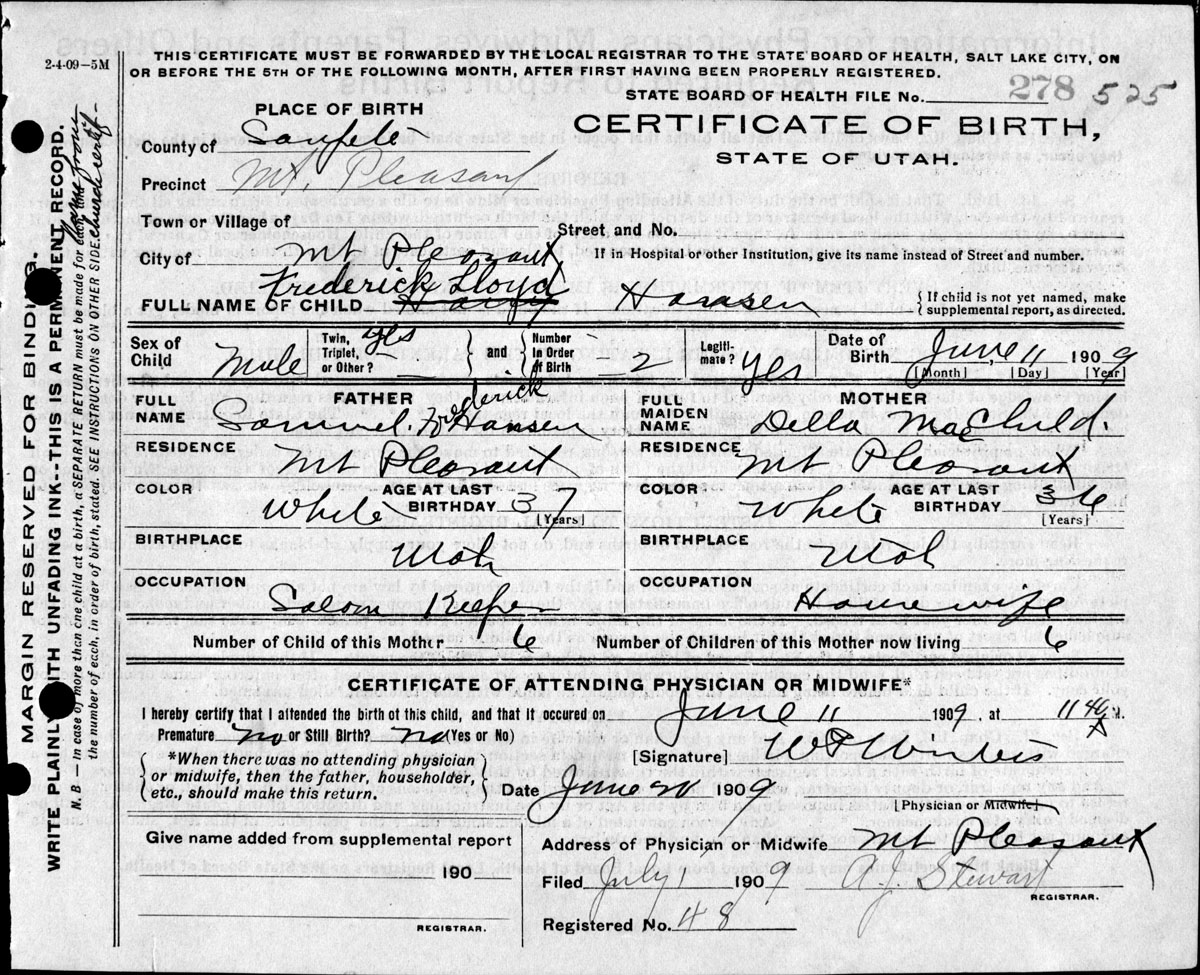 2-4-09—5M
THIS CERTIFICATE MUST BE FORWARDED BY THE LOCAL REGISTRAR TO THE STATE BOARD OF HEALTH, SALT LAKE CITY, ON
OR BEFORE THE 5TH OF THE FOLLOWING MONTH, AFTER FIRST HAVING BEEN PROPERLY REGISTERED.
STATE BOARD OF HEALTH FILE No. 278 525
PLACE OF BIRTH
CERTIFICATE OF BIRTH,
STATE OF UTAH.
County of Sanpete
Precinct Mt. Pleasant
Town or Village of
Street, and No.
City of Mt Pleasant
If in Hospital or other Institution, give its name instead of Street and number.
Frederick Lloyd
FULL NAME OF CHILD Hansen
{If child is not yet named, make supplemental report, as directed.
Sex of Child Male
Twin, Triplet, or Other? yes
and
Number in Order of Birth 2
Legiti-mate? yes
Date of Birth June 11 1909
[Month] [Day] [Year]
FATHER
MOTHER
FULL NAME Samuel. Frederick Hansen
FULL MAIDEN NAME Della MacChild.
RESIDENCE Mt Pleasant
RESIDENCE Mt Pleasant
COLOR White AGE AT LAST BIRTHDAY 37 [Years]
COLOR White AGE AT LAST BIRTHDAY 36 [Years]
BIRTHPLACE Utah
BIRTHPLACE Utah
OCCUPATION Saloon Keeper
OCCUPATION Housewife
Number of Child of this Mother 6
Number of Children of this Mother now living 6
CERTIFICATE OF ATTENDING PHYSICIAN OR MIDWIFE*
I hereby certify that I attended the birth of this child, and that it occured on June 11 1909, at 11 40 A M.
Premature? no or Still Birth? no (Yes or No)
*When there was no attending physician
or midwife, then the father, householder,
etc., should make this return.
[Signature] Winters
Date June 20 1909
[Physician or Midwife]
Give name added from supplemental report
190
REGISTRAR.
Address of Physician or Midwife Mt Pleasant
Filed July 1 1909 A. J. Stewart
REGISTRAR.
Registered No. 48
MARGIN RESERVED FOR BINDING.
WRITE PLAINLY WITH UNFADING INK—THIS IS A PERMANENT RECORD.
N. B.—In case of more than one child at a birth, a SEPARATE RETURN must be made for each, and
the number of each, in order of birth, stated. SEE INSTRUCTIONS ON OTHER SIDE.
Name from
church certif-